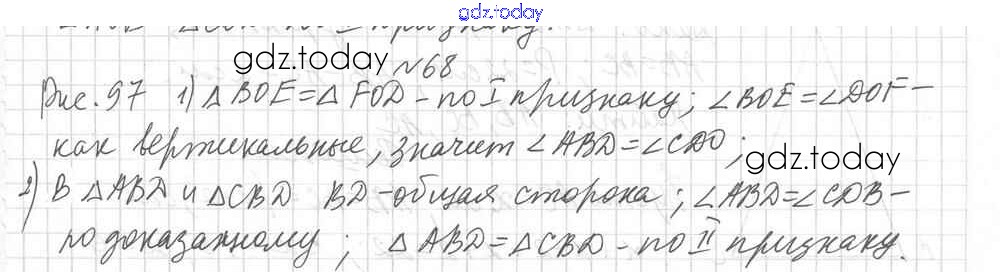 gdz.today
признаку.
gdz.today №68
Рис. 97 1) △ BOE = △ FOD - по I признаку; ∠BOE = ∠DOF -
как вертикальные, значит ∠ABD = ∠CDO;
gdz.today
2) В △ABD и △CBD BD - общая сторона; ∠ABD = ∠CDB -
по доказанному; △ ABD = △CBD - по II признаку.